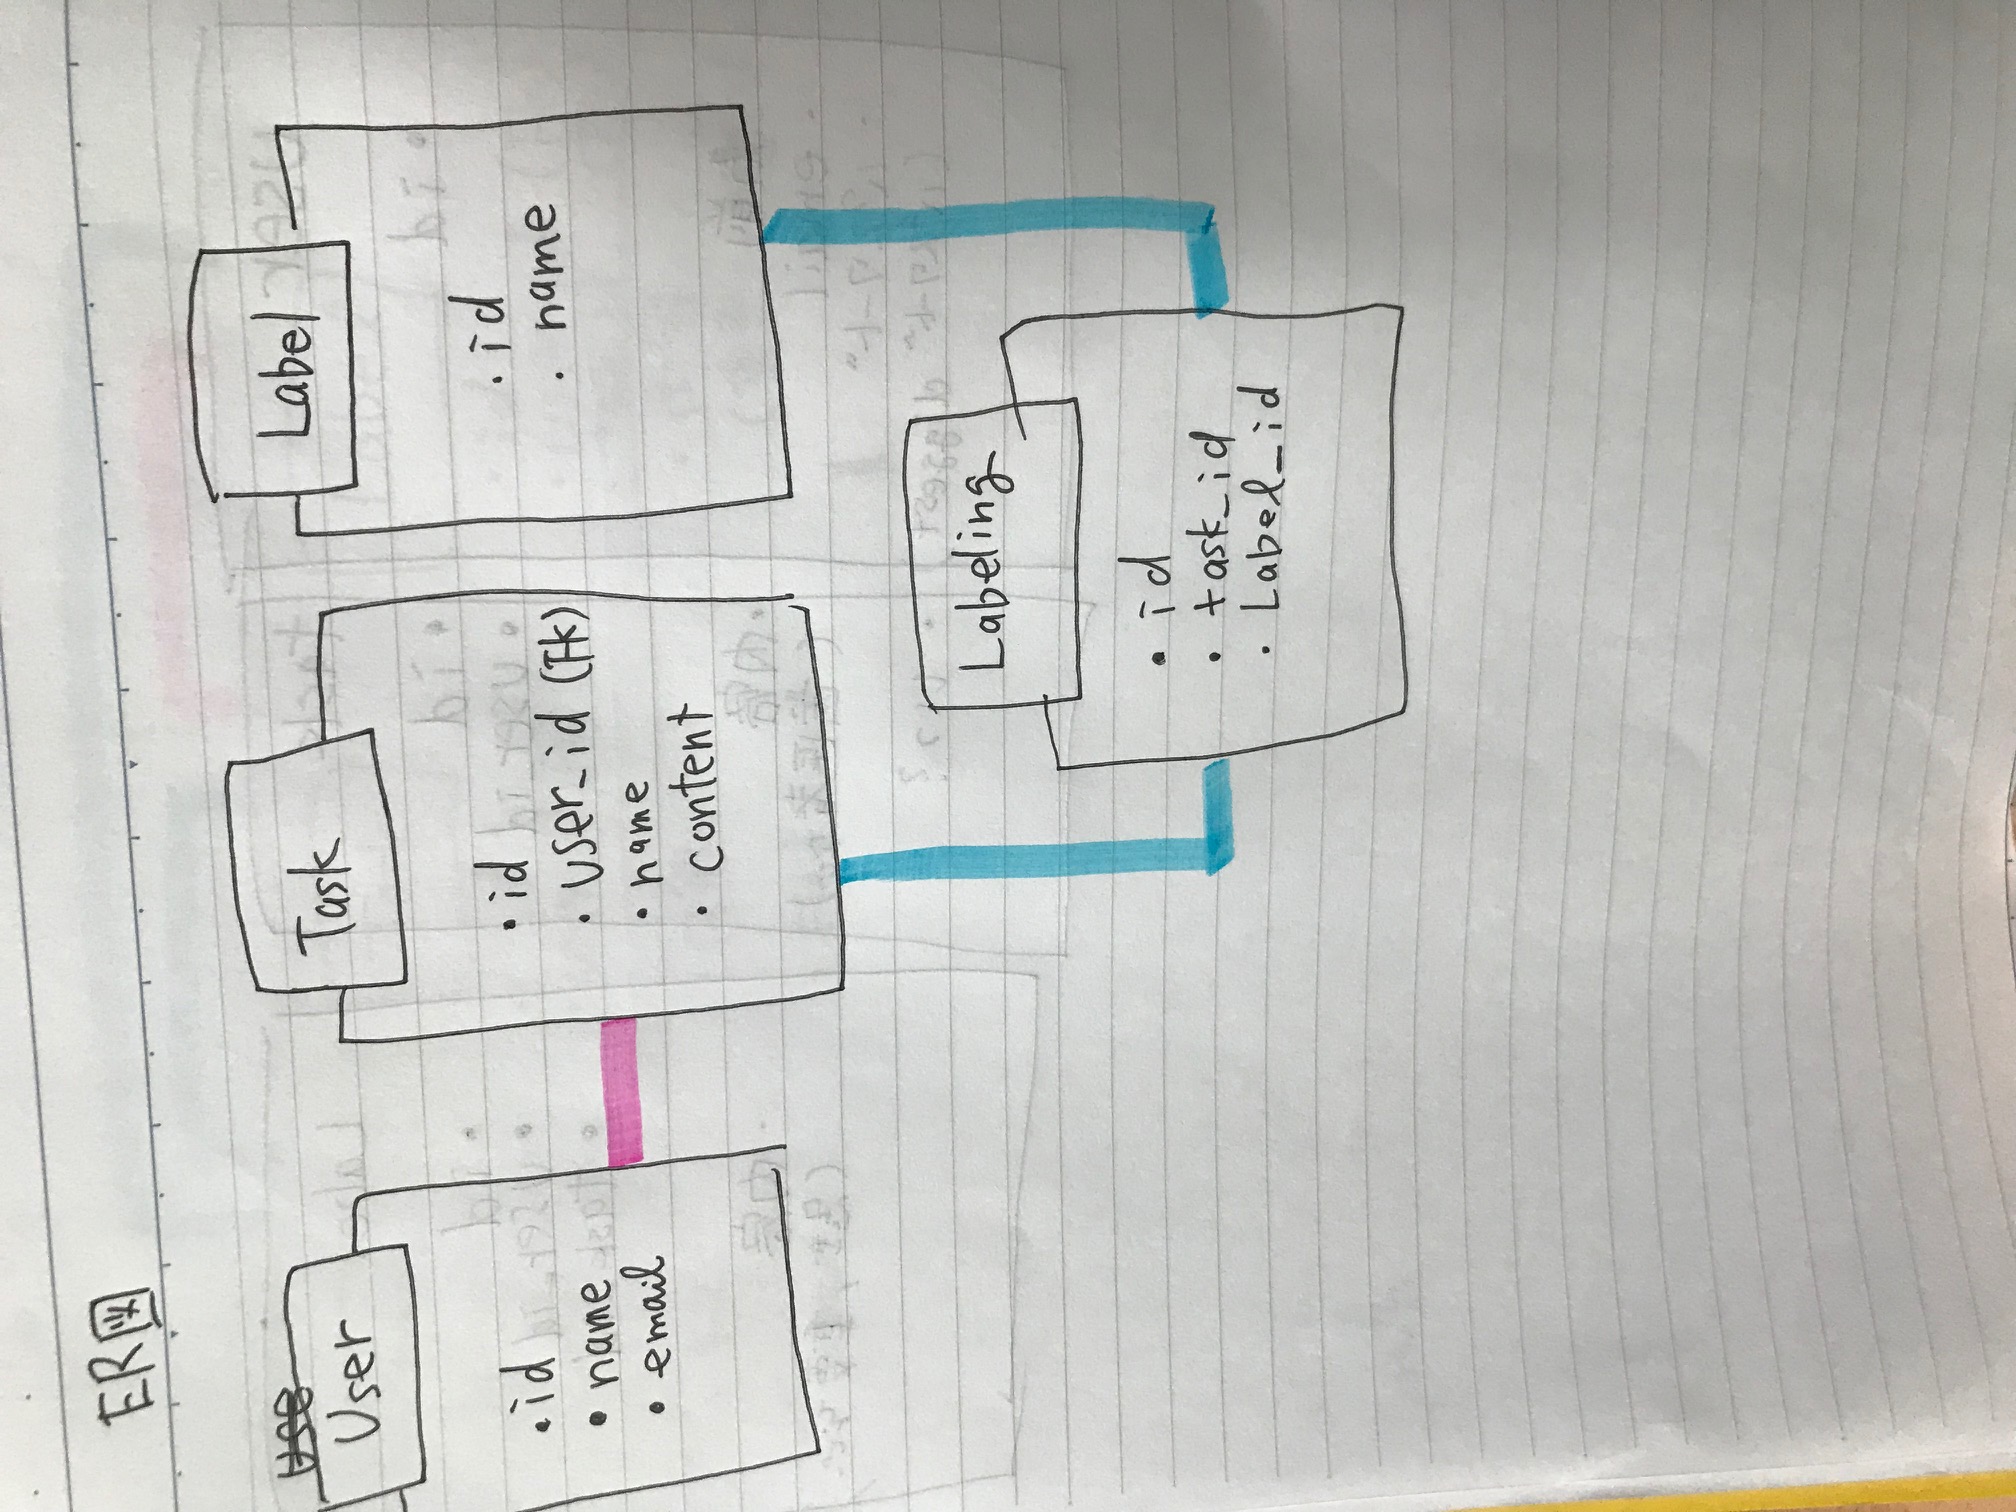 ER図
User
・id
・name
・email
Task
・id
・user_id (Fk)
・name
・content
Label
・id
・name
Labeling
・id
・task_id
・Label_id